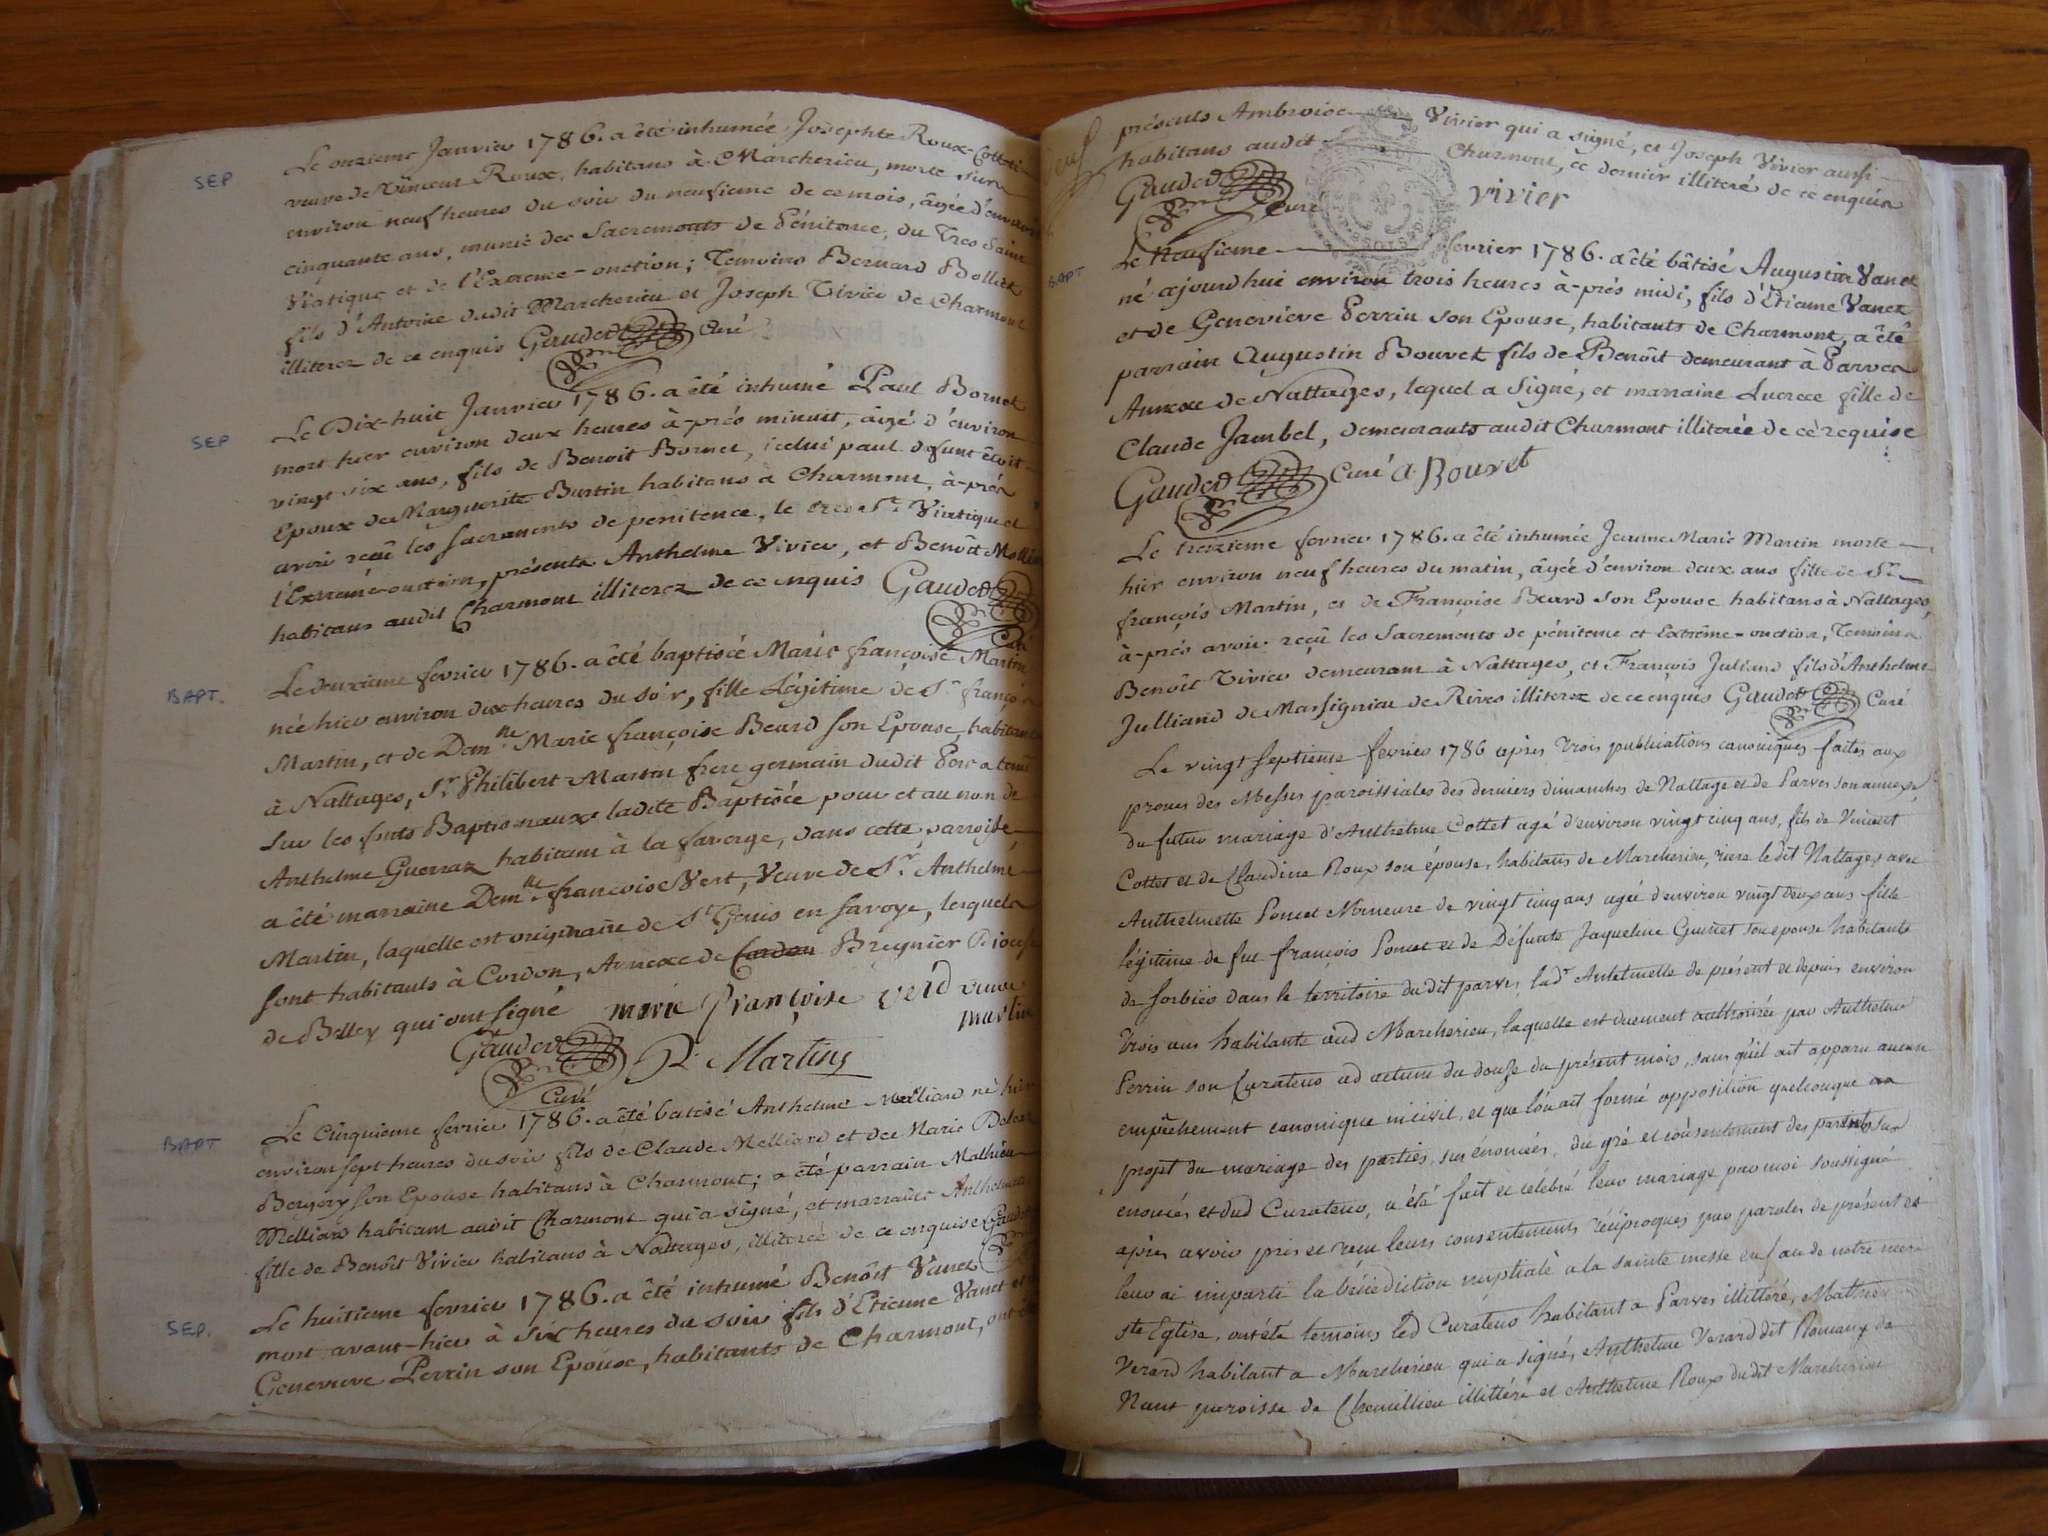 SEP
Le onzieme Janvier 1786. a été inhumée Josephte Roux-Collet
veuve de Vincent Roux, habitans à Marcherieu, morte sur
environ neuf heures du soir du neufieme de ce mois, âgée d'environ
cinquante ans, munie des Sacrements de Pénitence, du Tres Saint
Viatique et de l'Extreme-onction; Temoins Bernard Bolliet
fils d'Antoine dudit Marcherieu et Joseph Vivier de Charmont
illiterez de ce enquis Gaudet Curé
SEP
Le Dix-huit Janvier 1786. a été inhumé Paul Bornet
mort hier environ deux heures à-prés minuit, âgé d'environ
vingt six ans, fils de Benoit Bornet, icelui paul defunt étoit
Epoux de Marguerite Burtin habitans à Charmont, à-prés
avoir reçû les sacrements de penitence, le tres St. Viatique et
l'Extreme-onction, présents Anthelme Vivier, et Benoît
habitans audit Charmont illiterez de ce enquis Gaudet
Curé
BAPT.
Le deuxieme fevrier 1786. a été baptisée Marie françoise Martin
née hier environ dix heures du soir, fille Légitime de Sr. françois
Martin, et de Demlle. Marie françoise Beard son Epouse, habitans
à Nattages, Sr. Philibert Martin frere germain dudit Pere a tenu
sur les fonts Baptismaux ladite Baptisée pour et au nom de
Anthelme Guerraz habitant à la faverge, dans cette parroisse
a été marraine Demlle. francoise Vert, Veuve de Sr. Anthelme
Martin, laquelle est originaire de St Genis en Savoye, lesquels
sont habitants à Cordon, Annexe de Cordon Bregnier Diocese
de Belley qui ont signé marie françoise verd veuve
martin
Gaudet P. Martin
Curé
BAPT
Le Cinquieme fevrier 1786. a été batisé Anthelme Melliard né hier
environ sept heures du soir fils de Claude Melliard et de Marie
Bergery son Epouse habitans à Charmont; a été parrain Mathieu
Melliard habitant audit Charmont qui a signé, et marraine Anthelmette
fille de Benoît Vivier habitans à Nattages, illiterée de ce enquise Gaudet
SEP.
Le huitieme fevrier 1786. a été inhumé Benoît Vanet
mort avant-hier à six heures du soir fils d'Etienne Vanet et de
Genevieve Perrin son Epouse, habitants de Charmont, ont été
présents Ambroise Vivier qui a signé, et Joseph Vivier aussi
habitans audit Charmont, ce dernier illiteré de ce enquis
Gaudet Curé vivier
BAPT
Le Neufieme fevrier 1786. a été bâtisé Augustin Vanet
né ajourdhui environ trois heures à-prés midi, fils d'Étienne Vanet
et de Genevieve Perrin son Epouse, habitants de Charmont, a été
parrain Augustin Bouvet fils de Benoît demeurant à Parves
Annexe de Nattages, lequel a Signé, et marraine Lucrece fille de
Claude Jambel, demeurants audit Charmont illiterée de ce requise
Gaudet Curé A Bouvet
Le treizieme fevrier 1786. a été inhumée Jeanne Marie Martin morte
hier environ neuf heures du matin, âgée d'environ deux ans fille de Sr
françois Martin, et de Françoise Beard son Epouse habitans à Nattages,
à-prés avoir reçû les Sacrements de pénitence et Extrême-onction, Temoins
Benoît Vivier demeurant à Nattages, et François Julliand fils d'Anthelme
Julliand de Massigniau de Rives illiterez de ce enquis Gaudet Curé
Le vingt septieme fevrier 1786 après trois publications canoniques faites aux
prones des Messes paroissiales des derniers dimanches de Nattage et de Parves son annexe
du futur mariage d'Anthelme Cottet agé d'environ vingt cinq ans, fils de Vincent
Cottet et de Claudine Roux son épouse, habitans de Marcherieu, riere le dit Nattages avec
Anthelmette Poncet Mineure de vingt cinq ans agée d'environ vingt deux ans fille
légitime de fut françois Poncet et de Défunte Jaqueline Guittet son epouse habitante
de Sorbier dans le territoire dudit parves, lade Antelmette de présent et depuis environ
trois ans habitante aud Marcherieu, laquelle est duement authorisée par Anthelme
Perrin son Curateur ad actum du douze du présent mois, sans qu'il ait apparu aucun
empêchement canonique ni civil, et que l'on ait formé opposition quelconque au
projet du mariage des parties sus énoncées, du gré et consentement des parents sus
enoncés et dud Curateur, a été fait et célébré leur mariage par moi soussigné
après avoir pris et reçu leurs consentements réciproques par paroles de présent et
leur ai imparti la bénédiction nuptiale a la sainte messe en face de notre mere
ste Eglise, ont été temoins led Curateur habitant a Parves illitéré, Mathieu
Verard habitant a Marcherieu qui a signé, Anthelme Verard dit Romany de
Nant paroisse de Chemillieu illitéré et Anthelme Roux dudit Marcherieu